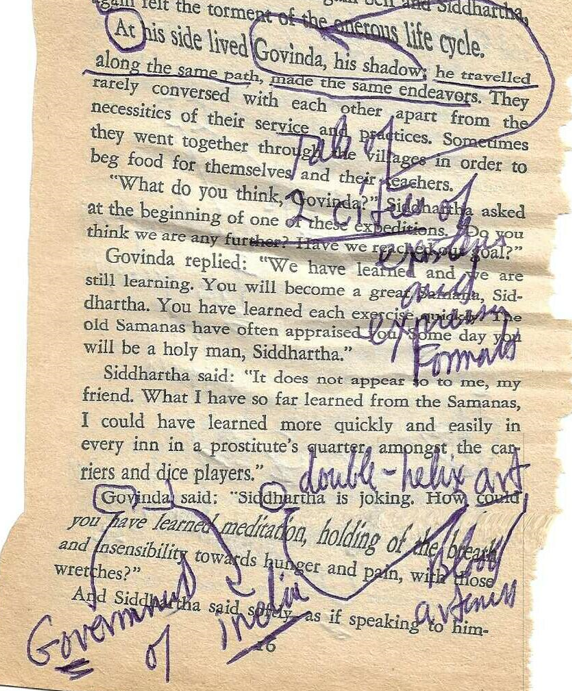 again felt the torment of the onerous life cycle.
At his side lived Govinda, his shadow; he travelled
along the same path, made the same endeavors. They
rarely conversed with each other apart from the
necessities of their service and practices. Sometimes
they went together through the villages in order to
beg food for themselves and their teachers.
"What do you think, Govinda?" Siddhartha asked
at the beginning of one of these expeditions. "Do you
think we are any further? Have we reached our goal?"
Govinda replied: "We have learned and we are
still learning. You will become a great Samana, Sid-
dhartha. You have learned each exercise quickly. The
old Samanas have often appraised you. Some day you
will be a holy man, Siddhartha."
Siddhartha said: "It does not appear so to me, my
friend. What I have so far learned from the Samanas,
I could have learned more quickly and easily in
every inn in a prostitute's quarter, amongst the car-
riers and dice players."
Govinda said: "Siddhartha is joking. How could
you have learned meditation, holding of the breath
and insensibility towards hunger and pain, with those
wretches?"
And Siddhartha said softly, as if speaking to him-
16
Tale of
2 cities of
and
express
Formats
double-helix art
blood
Government
of India